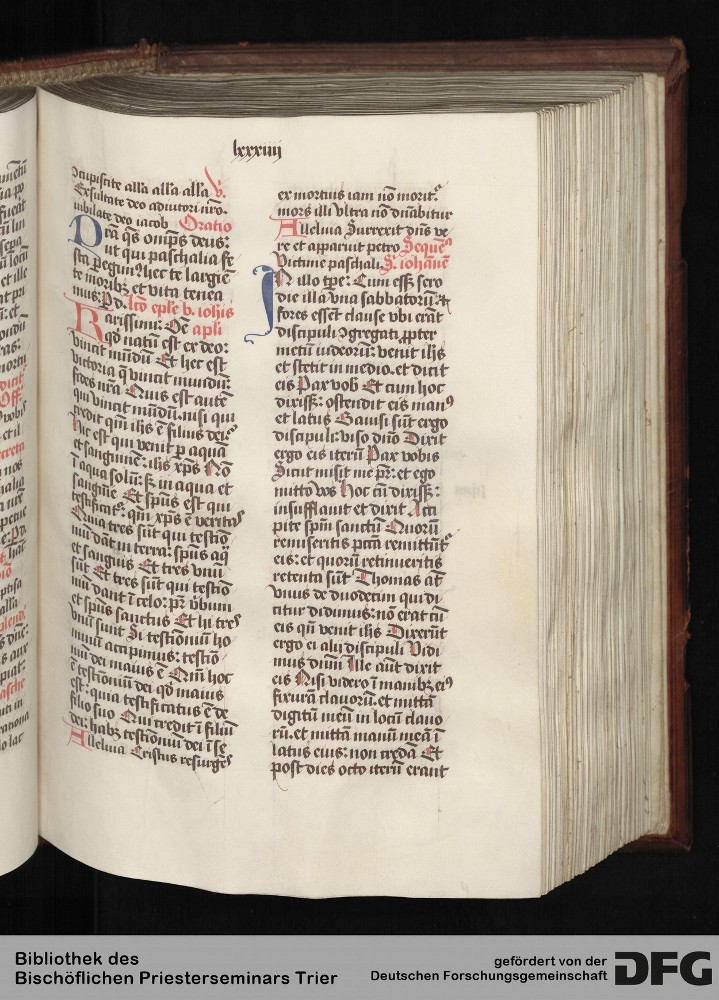 lxxxiiii
ↄcupiscite all'a all'a all'a V̓.
Exsultate deo adiutori nr̄o.
iubilate deo iacob Oratio
Dra q̄s omīps deus:
ut qui paschalia fe
sta ꝑegim9 hec te largiē
te morib3 et vita tenea
mus: P d. lc̄o epl̄e b. iohīs
Karissimi: Oē apl̄i
qd̄ natū est ex deo:
vincit mūdū Et hec est
victoria q̄ vincit mundū:
fides nr̄a Quis est autē
qui vincit mūdū: nisi qui
credit qm̄ ih̄s ē filius dei?
Hic est qui venit ꝑ aquā
et sanguinē: ih̄s xp̄s Nō
ī aqua solū: s3 in aqua et
sanguīe Et sp̄us est qui
testificat᷑: qm̄ xp̄s ē veritas
Quia tres sūt qui testīo
niū dāt in terra: sp̄us aq̄
et sanguis Et tres vnū
sūt Et tres sūt qui testīo
niū dant ī celo: pr̄ v̓bum
et sp̄us sanctus Et hi tres
vnū sunt Si testimoniū ho
minū accipimus: testīo
niū dei maius ē Qm̄ hoc
ē testīoniū dei qd̄ maius
est: quia testificatus ē de
filio suo Qui credit ī filiū
dei: hab3 testīoniū dei ī se
Alleluia Cristus resurgēs
ex mortuis iam nō morit᷑
mors illi vltra nō dn̄abitur
Alleluia Surrexit dn̄s ve
re et apparuit petro Sequē
Victime paschali S. iohānē
IN illo tp̄e: Cum ess3 sero
die illa vna sabbatorū: et
fores essēt clause vbi erāt
discipuli ↄgregati ꝓpter
metū iudeorū: venit ih̄s
et stetit in medio. et dicit
eis Pax vob̄ Et cum hoc
dixiss3: ostendit eis man9
et latus Gauisi sūt ergo
discipuli: viso dn̄o Dixit
ergo eis iterū Pax vobis
Sicut misit me pr̄: et ego
mitto vos Hoc cū dixiss3:
insufflauit et dixit Acci
pite sp̄m sanctū Quorū
remiseritis pctā remittūt᷑
eis: et quorū retinueritis
retenta sūt Thomas aūt
vnus de duodecim qui di
citur didimus: nō erat cū
eis qn̄ venit ih̄s Dixerūt
ergo ei alij discipuli Vidi
mus dn̄m Ille aūt dixit
eis Nisi videro ī manib3 ei9
fixurā clauorū. et mittā
digitū meū in locū clauo
rū. et mittā manū meā ī
latus eius: non credā Et
post dies octo iterū erant
Bibliothek des
Bischöflichen Priesterseminars Trier
gefördert von der
Deutschen Forschungsgemeinschaft
DFG